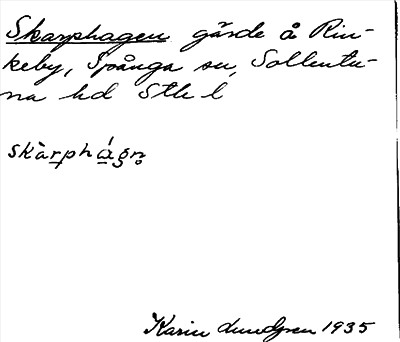 Skarphagen gärde å Rin-
keby, Spånga sn, Sollentu-
na hd Sthl l
skàrphágn̥
Karin Lundgren 1935